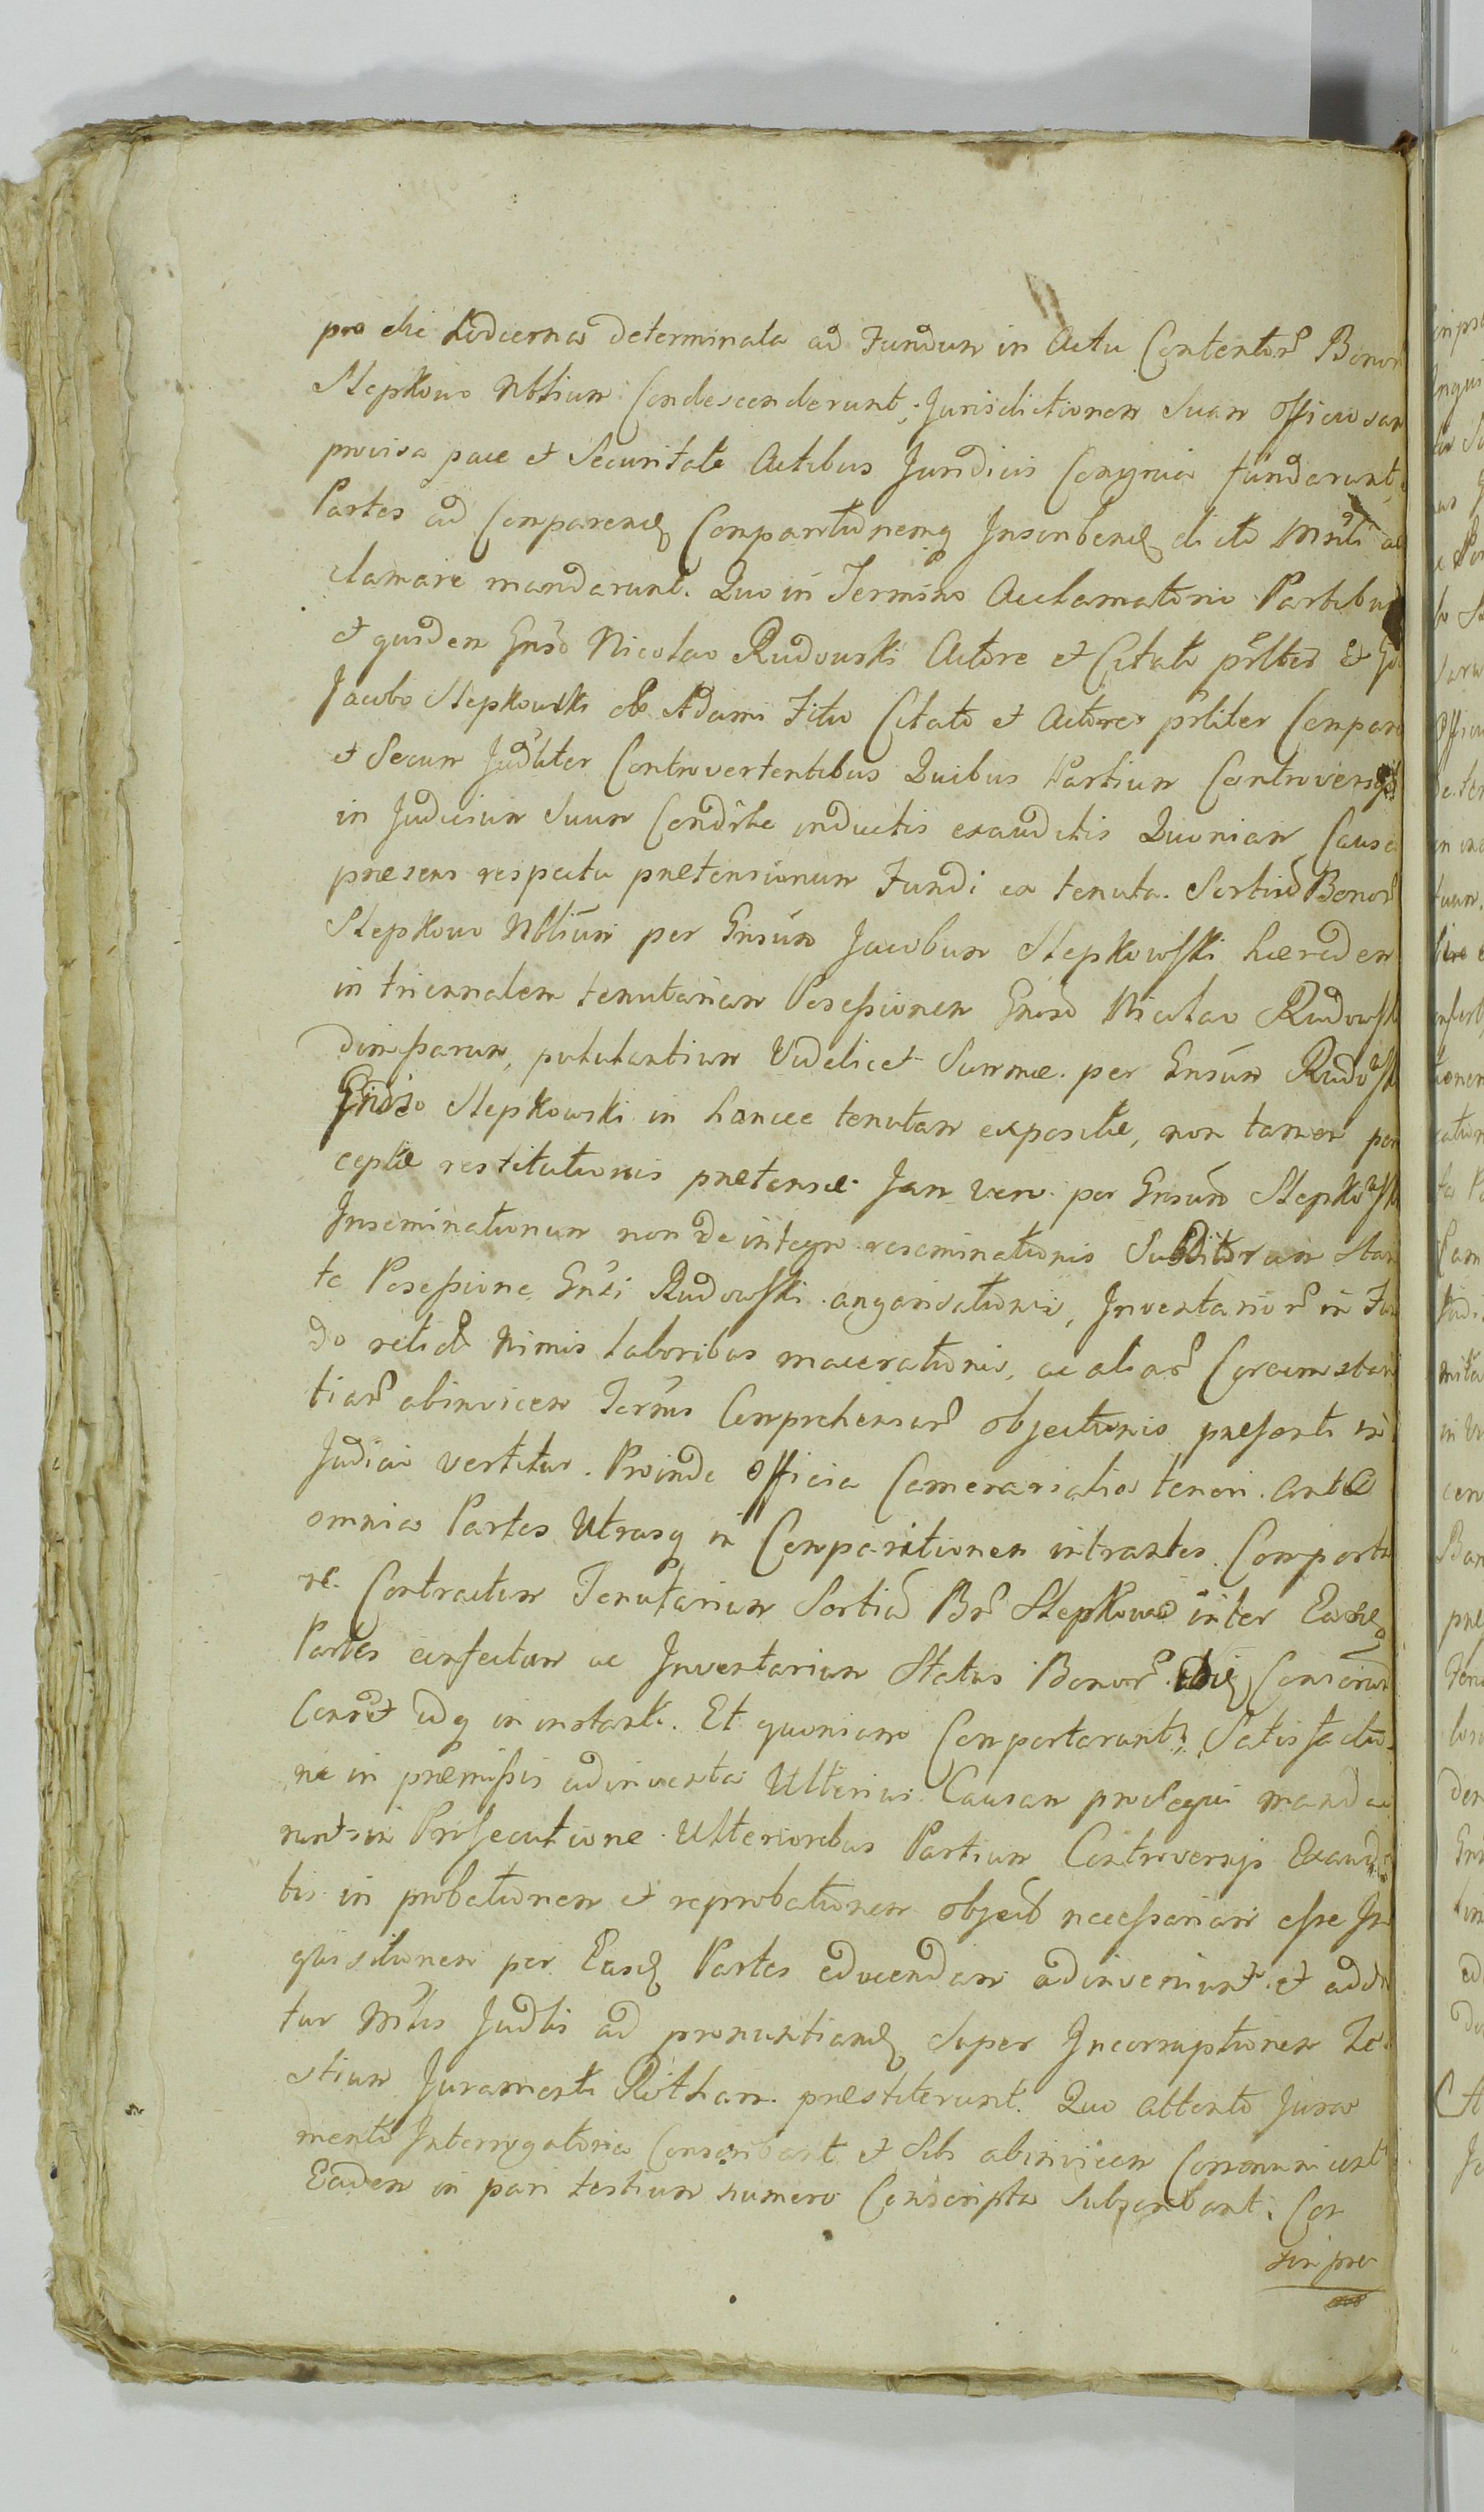 pro die hodierna determinata ad Fundum in Actu Contentor Bonor
Stepkowo Nblium Condescenderunt, Jurisdictionem Suam Officiosam
provisa pace et Securitate Actibus Juridicis Congrua fundarunt,
Partes ad Comparend Comparitionemq Inscribend dicto Mnti ac
clamare mandarunt. Quo in Termino Acclamatorio Partibus
et quidem Gnso Nicolao Rudowski Actore et Citato prltes et
Jacobo Stepkowski olo Adami Filio Citato et Actore prliter Compar
et Secum Judlter Controvertentibus Quibus Partium Controversijs
in Judicium Suum Condrtte inductis exauditis Quoniam Causa
praesens respectu praetensionum Fundi ex tenuta Sortis Bonor
Stepkowo Nblium per Gnsum Jacobum Stepkowski haeredem
in triennalem tenutariam Possessionem Gnoso Nicolao Rudowski
dimissarum, pullulantium Videlicet Summae per Gnsum Rudowsk
Gnoso Stepkowski in hancce tenutam expositae, non tamen per
ceptae restitutionis praetensae Jam vero per Gnsum Stepkowsk
Inseminationum non de integro reseminationis Subditorum Stan
te Possessione Gnsi Rudowski angarisationis, Inventarior in Fun
do relict Nimis laboribus macerationis, ac aliar Circumstan
tiar abinvicem Termis Comprehensar objectionis praesenti in
Judicio vertitur. Proinde Officia Cameraria teneri ante
omnia Partes Utrasq in Comparitionem intrantes Comporta
re Contractum Tenutarium Sortis Br Stepkowo inter Easd
Partes confectum ac Inventarium Status Bonor Conscrib
idq in instanti. Et quoniam Comportarunt, Satisfactio
ne in praemissis adinventa Ulterius Causam prosequi manda
runt in Prosecutione Ulterioribus Partium Controversijs Exaudi
tis in probationem et reprobationem object necessariam esse In
quisitionem per Easd Partes educendam adinveniunt et addi
tur Mtlis Judlis ad pronuntiand Super Incorruptionem Te
stium Juramenti Rotham praestiterunt. Quo attento Jura
mento Interrogatoria Conscribant et Sibi abinvicem Communicent
Eadem in pari testium numero Conscripta Subscribant, Con